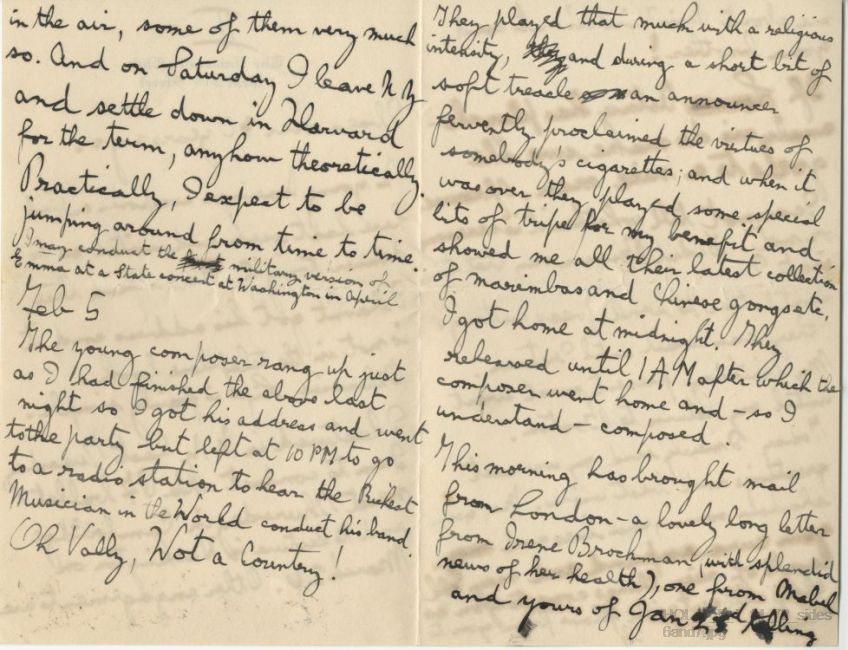 in the air, some of them very much
so. And on Saturday I leave N Y
and settle down in Harvard
for the term, anyhow theoretically.
Practically, I expect to be
jumping around from time to time.
I may conduct the military version of
Emma at a State concert at Washington in April
Feb 5
The young composer rang up just
as I had finished the above last
night so I got his address and went
to the party but left at 10 PM to go
to a radio station to hear the Richest
Musician in the World conduct his band.
Oh Vally, Wot a Country!
They played that much with a religious
intensity, and during a short bit of
soft treacle an announcer
fervently proclaimed the virtues of
somebody's cigarettes; and when it
was over they played some special
bits of tripe for my benefit and
showed me all their latest collection
of marimbas and Chinese gongs etc.
I got home at midnight. They
rehearsed until 1 AM after which the
composer went home and - so I
understand - composed.
This morning has brought mail
from London - a lovely long letter
from Irene Brochman (with splendid
news of her health), one from Mabel
and yours of Jan telling
sides
6and7.jpg